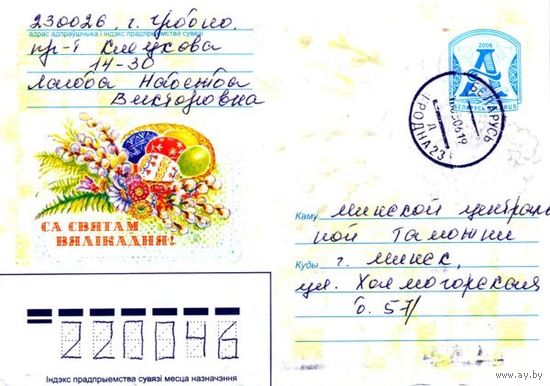 230026. г. Гродно.
адрас адпраўшчыка і індэкс прадпрыемства сувязі
пр-т Клецкова
14-30
Надежда
Викторовна
2006
А
БЕЛАРУСЬ BELARUS
БЕЛАРУСЬ
ГРОДНА 23
Д
СА СВЯТАМ
ВЯЛІКАДНЯ!
Каму Минской централь
ной таможни
Куды г. Минск,
ул. Холмогорская
д. 57/
220046
Індэкс прадпрыемства сувязі месцаназначэння
www.ay.by